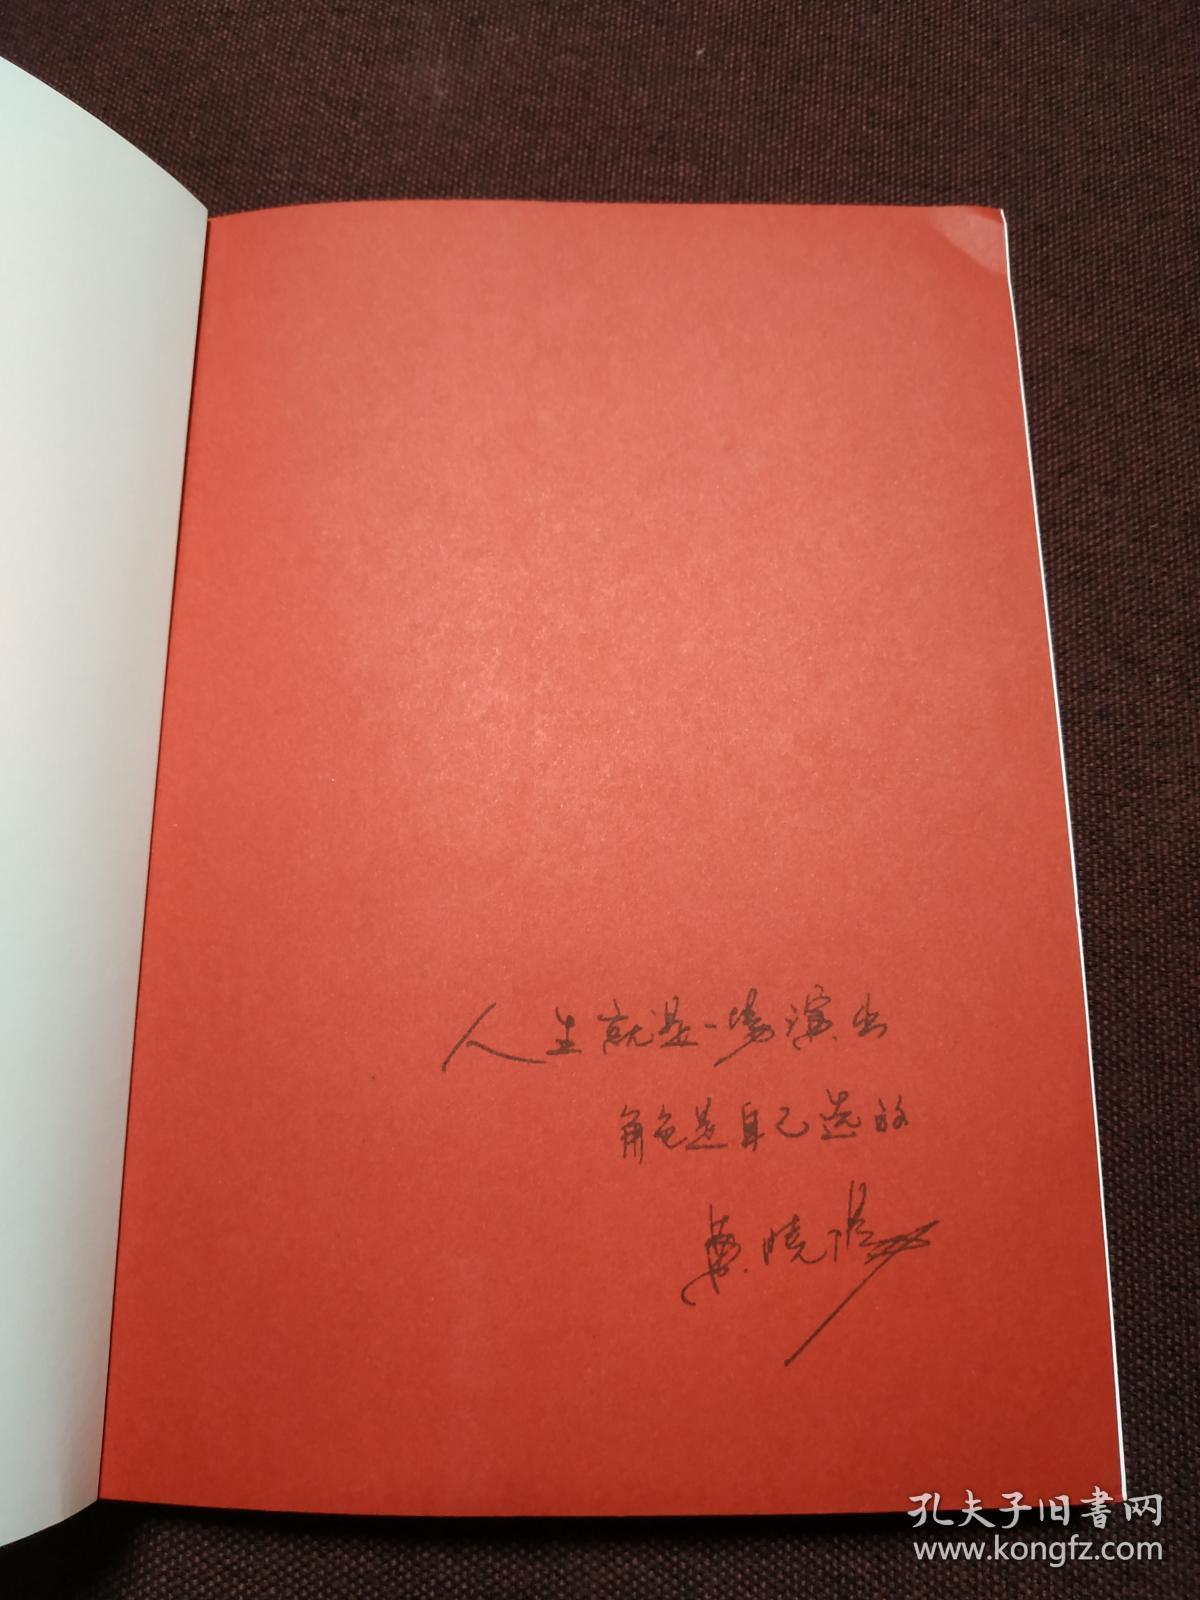 人生就是一场演出
角色是自己选的
晓
孔夫子旧书网
www.kongfz.com